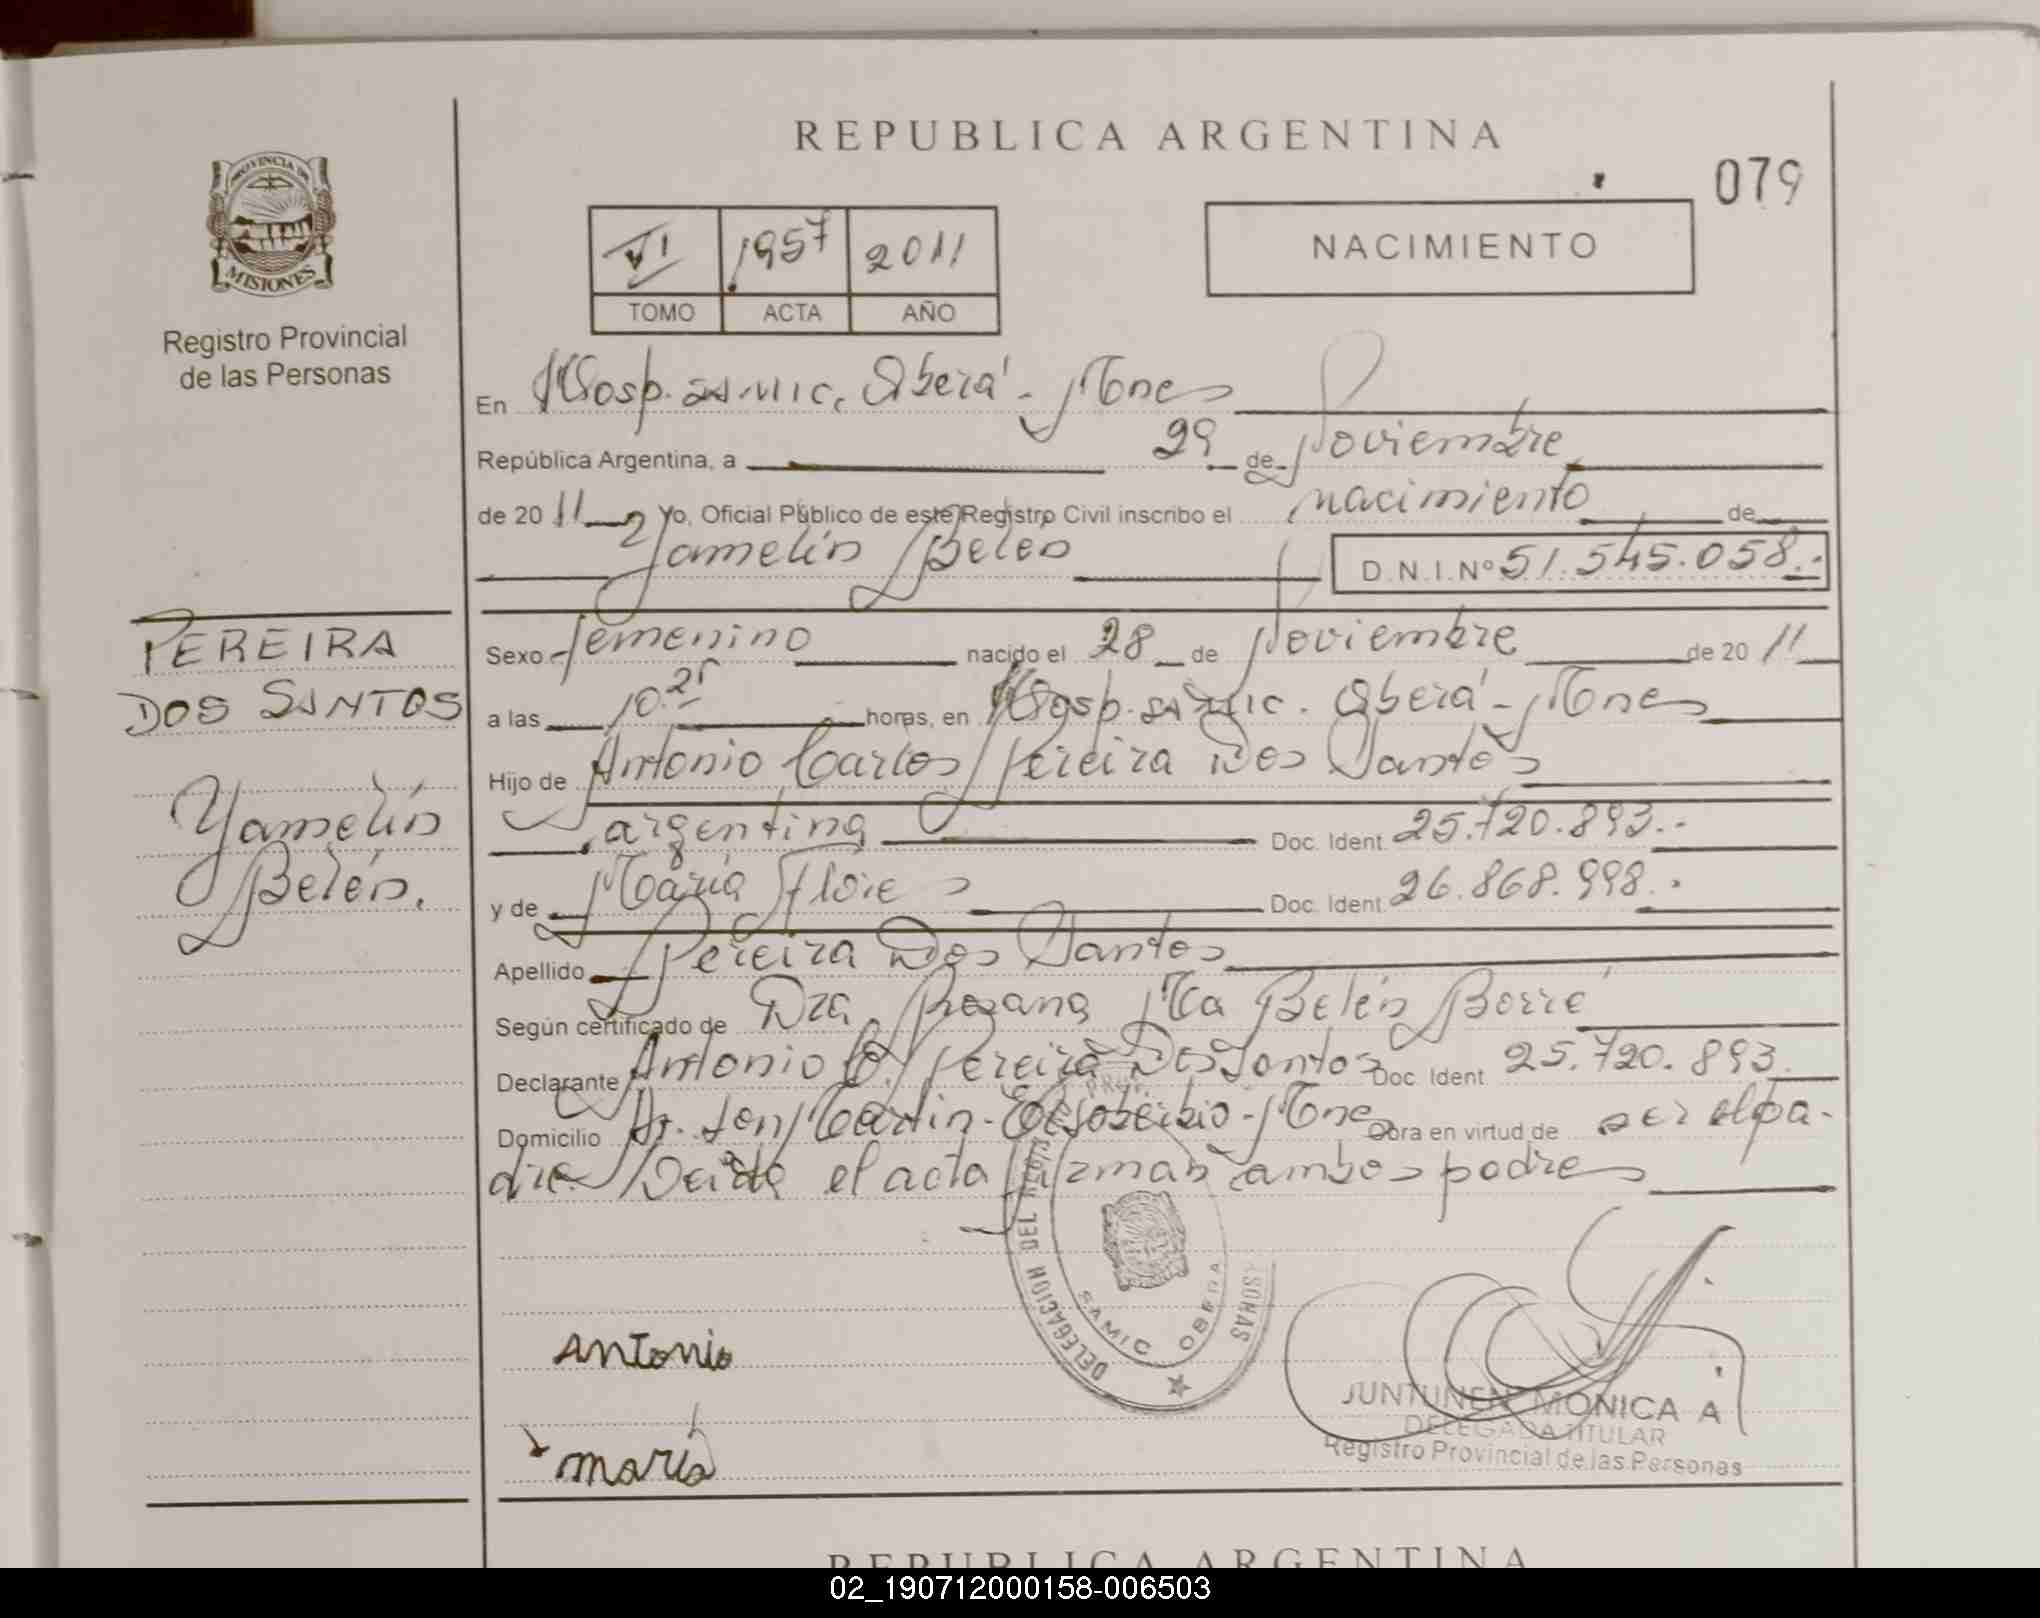 REPUBLICA ARGENTINA
079
PROVINCIA DE
MISIONES
Registro Provincial
de las Personas
VI 1957 2011
TOMO ACTA AÑO
NACIMIENTO
En Hosp. SAMIC. Oberá - Mnes
República Argentina, a 29 de Noviembre
de 2011 Yo, Oficial Público de este Registro Civil inscribo el nacimiento de
Yamelin Belén D.N.I. Nº 51.545.058.-
PEREIRA
DOS SANTOS
Yamelin
Belén.
Sexo femenino nacido el 28 de Noviembre de 2011
a las 10.25 horas, en Hosp. SAMIC. Oberá - Mnes
Hijo de Antonio Carlos Pereira Dos Santos
argentina Doc. Ident. 25.720.893.-
y de María Flores Doc. Ident. 26.868.998.-
Apellido Pereira Dos Santos
Según certificado de Dra. Rosana Ma Belén Borré
Declarante Antonio C. Pereira Dos Santos Doc. Ident 25.720.893
Domicilio San Martin - - Mnes Obra en virtud de ser el pa-
dre. el acta firman ambos padres
DELEGACION DEL
SAMIC OBERA
Antonio
María
JUNTUNEN MONICA A
DELEGADA TITULAR
Registro Provincial de las Personas
REPUBLICA ARGENTINA
02_190712000158-006503